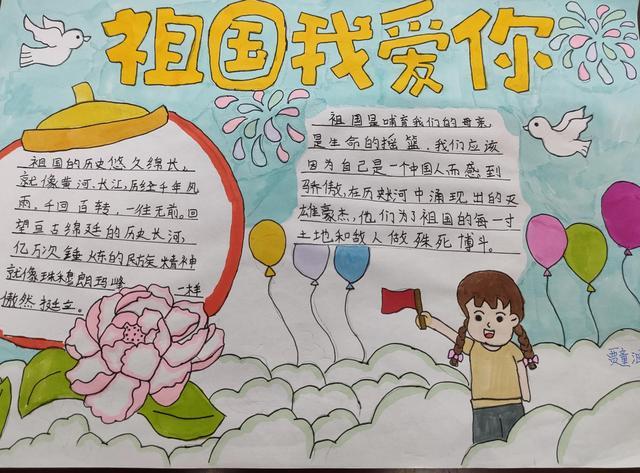 祖国我爱你
祖国的历史悠久绵长,
就像黄河,长江,历经千年风
雨,千回百转,一往无前。回
望亘古绵延的历史长河,
亿万次锤炼的民族精神
就像珠穆朗玛峰 一样
傲然挺立。
祖国是哺育我们的母亲,
是生命的摇篮,我们应该
因为自己是一个中国人而感到
骄傲,在历史河中涌现出的英
雄豪杰,他们为了祖国的每一寸
土地和敌人做殊死博斗。
贾童